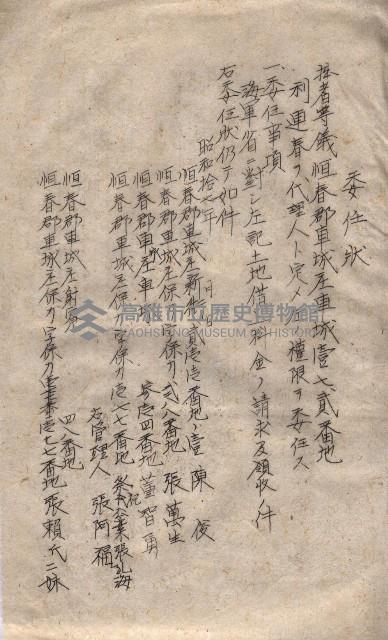 委任狀
拙者等儀恒春郡車城庄車城壹七貳番地
利運春ヲ代理人ト定メ 權限ヲ委任ス
一、委任事項
海軍省ニ對シ左記土地借 料金ノ請求及領收ノ件
右委任狀仍テ如件
昭和拾七年 月 日
恒春郡車城庄新街貳壹壹番地ノ壹 陳 俊
恒春郡車城庄保力字保力 貳八番地 張萬生
恒春郡車城庄車城 壹四番地 董智勇
恒春郡車城庄保力字保力壹七七番地 祭祀公業張乳海
右管理人 張阿
恒春郡車城庄射寮 四八番地
恒春郡車城庄保力字保力壹七七番地 張賴氏二妹
高雄市立歷史博物館
KAOHSIUNG MUSEUM OF HISTORY